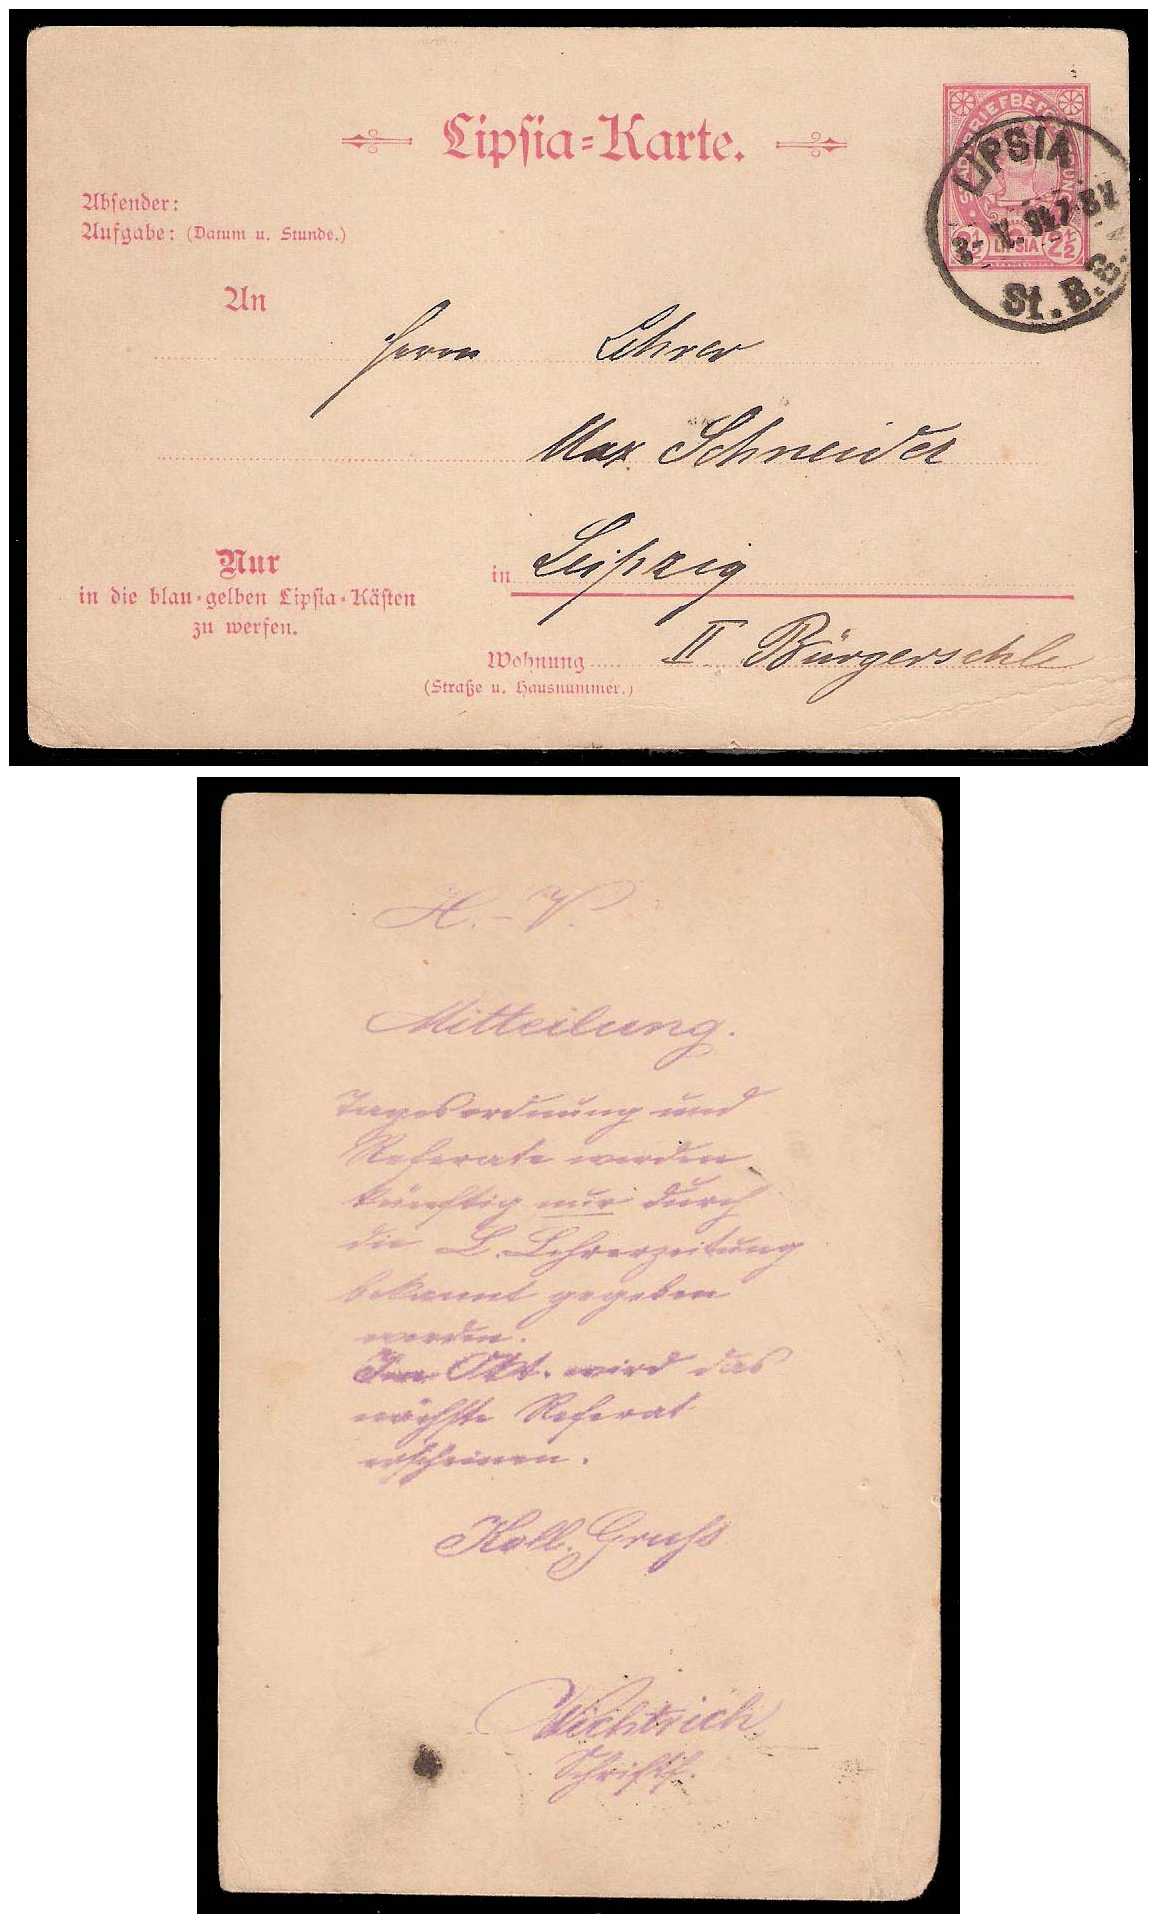 Lipsia-Karte.
Absender:
Aufgabe: (Datum u. Stunde.)
STADTBRIEFBEFÖRDERUNG
LIPSIA
2½ LIPSIA 2½
LIPSIA
V. 94 7-8 V.
St. B. B.
An
Herrn Lehrer
Max Schneider
in Leipzig
Nur
in die blau-gelben Lipsia-Kästen
zu werfen.
Wohnung II Bürgerschle
(Straße u. Hausnummer.)
H.-V.
Mitteilung.
Tagesordnung und
Referate werden
künftig nur durch
die L. Lehrerzeitung
bekannt gegeben
werden.
Im Okt. wird das
nächste Referat
erscheinen.
Koll. Gruß
Wichtrich
Schriftf.